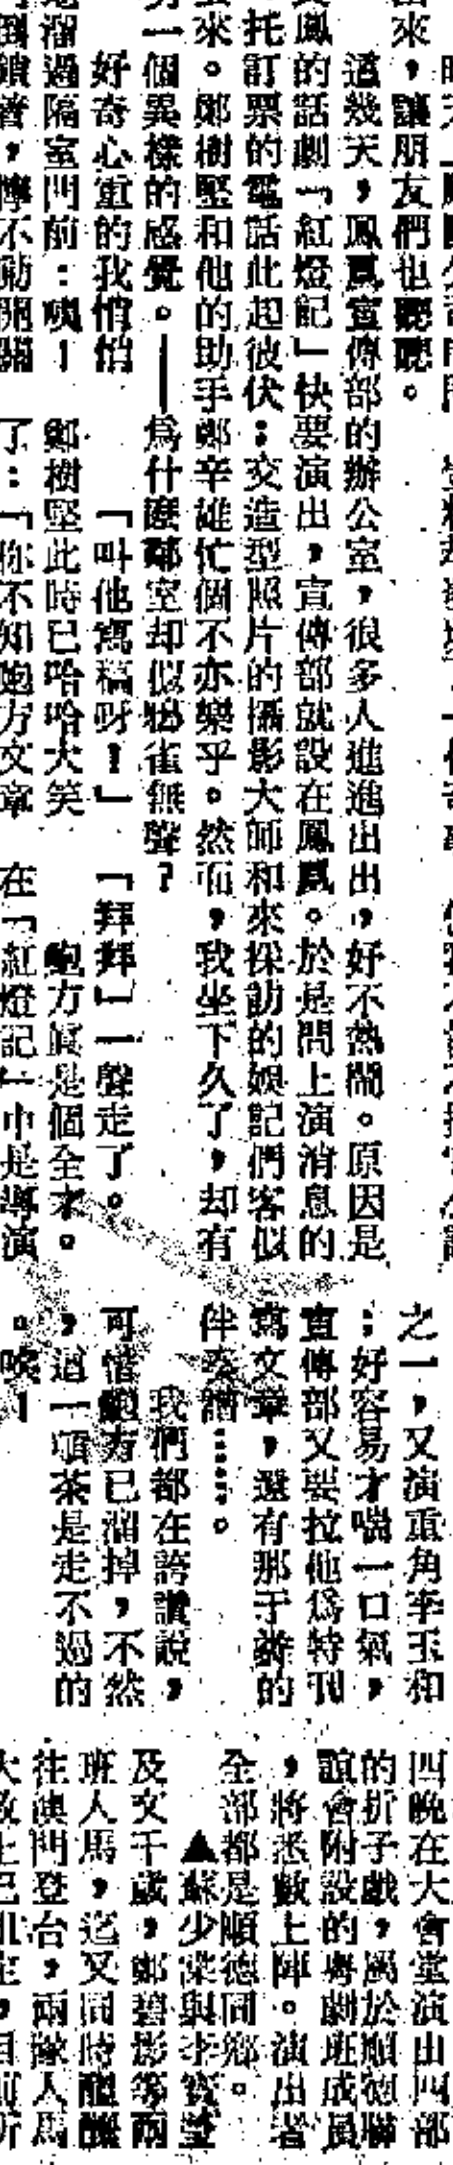 來，讓朋友們也聽聽。
這幾天，鳳凰宣傳部的辦公室，很多人進進出出，好不熱鬧。原因是
鳳的話劇「紅燈記」快要演出，宣傳部就設在鳳凰。於是問上演消息的
托訂票的電話此起彼伏；交造型照片的攝影大師和來採訪的娛記們客似
來。鄭樹堅和他的助手鄭辛雄忙個不亦樂乎。然而，我坐下久了，却有
一個異樣的感覺。——爲什麼鄰室却似鴉雀無聲？
好奇心重的我悄悄
地溜過隔室門前：咦！
倒鎖着，擰不動開關
「叫他寫稿呀！」
鄭樹堅此時已哈哈大笑
了：「你不知鮑方文章
「拜拜」一聲走了。
鮑方眞是個全才。
在「紅燈記」中是導演
之一，又演重角李玉和
；好容易才喘一口氣，
宣傳部又要拉他爲特刊
寫文章，還有那于的
伴奏譜……。
我們都在誇讚說，
可惜鮑方已溜掉，不然
，這一頓茶是走不過的
。唉！
四晚在大會堂演出四部
的折子戲，屬於順德聯
誼會附設的粵劇班成員
，將悉數上陣。演出者
全部都是順德同鄉。
▲蘇少棠與李寶瑩
及文千歲，鄭碧影等兩
班人馬，迄又同時醞釀
往澳門登台，兩隊人馬